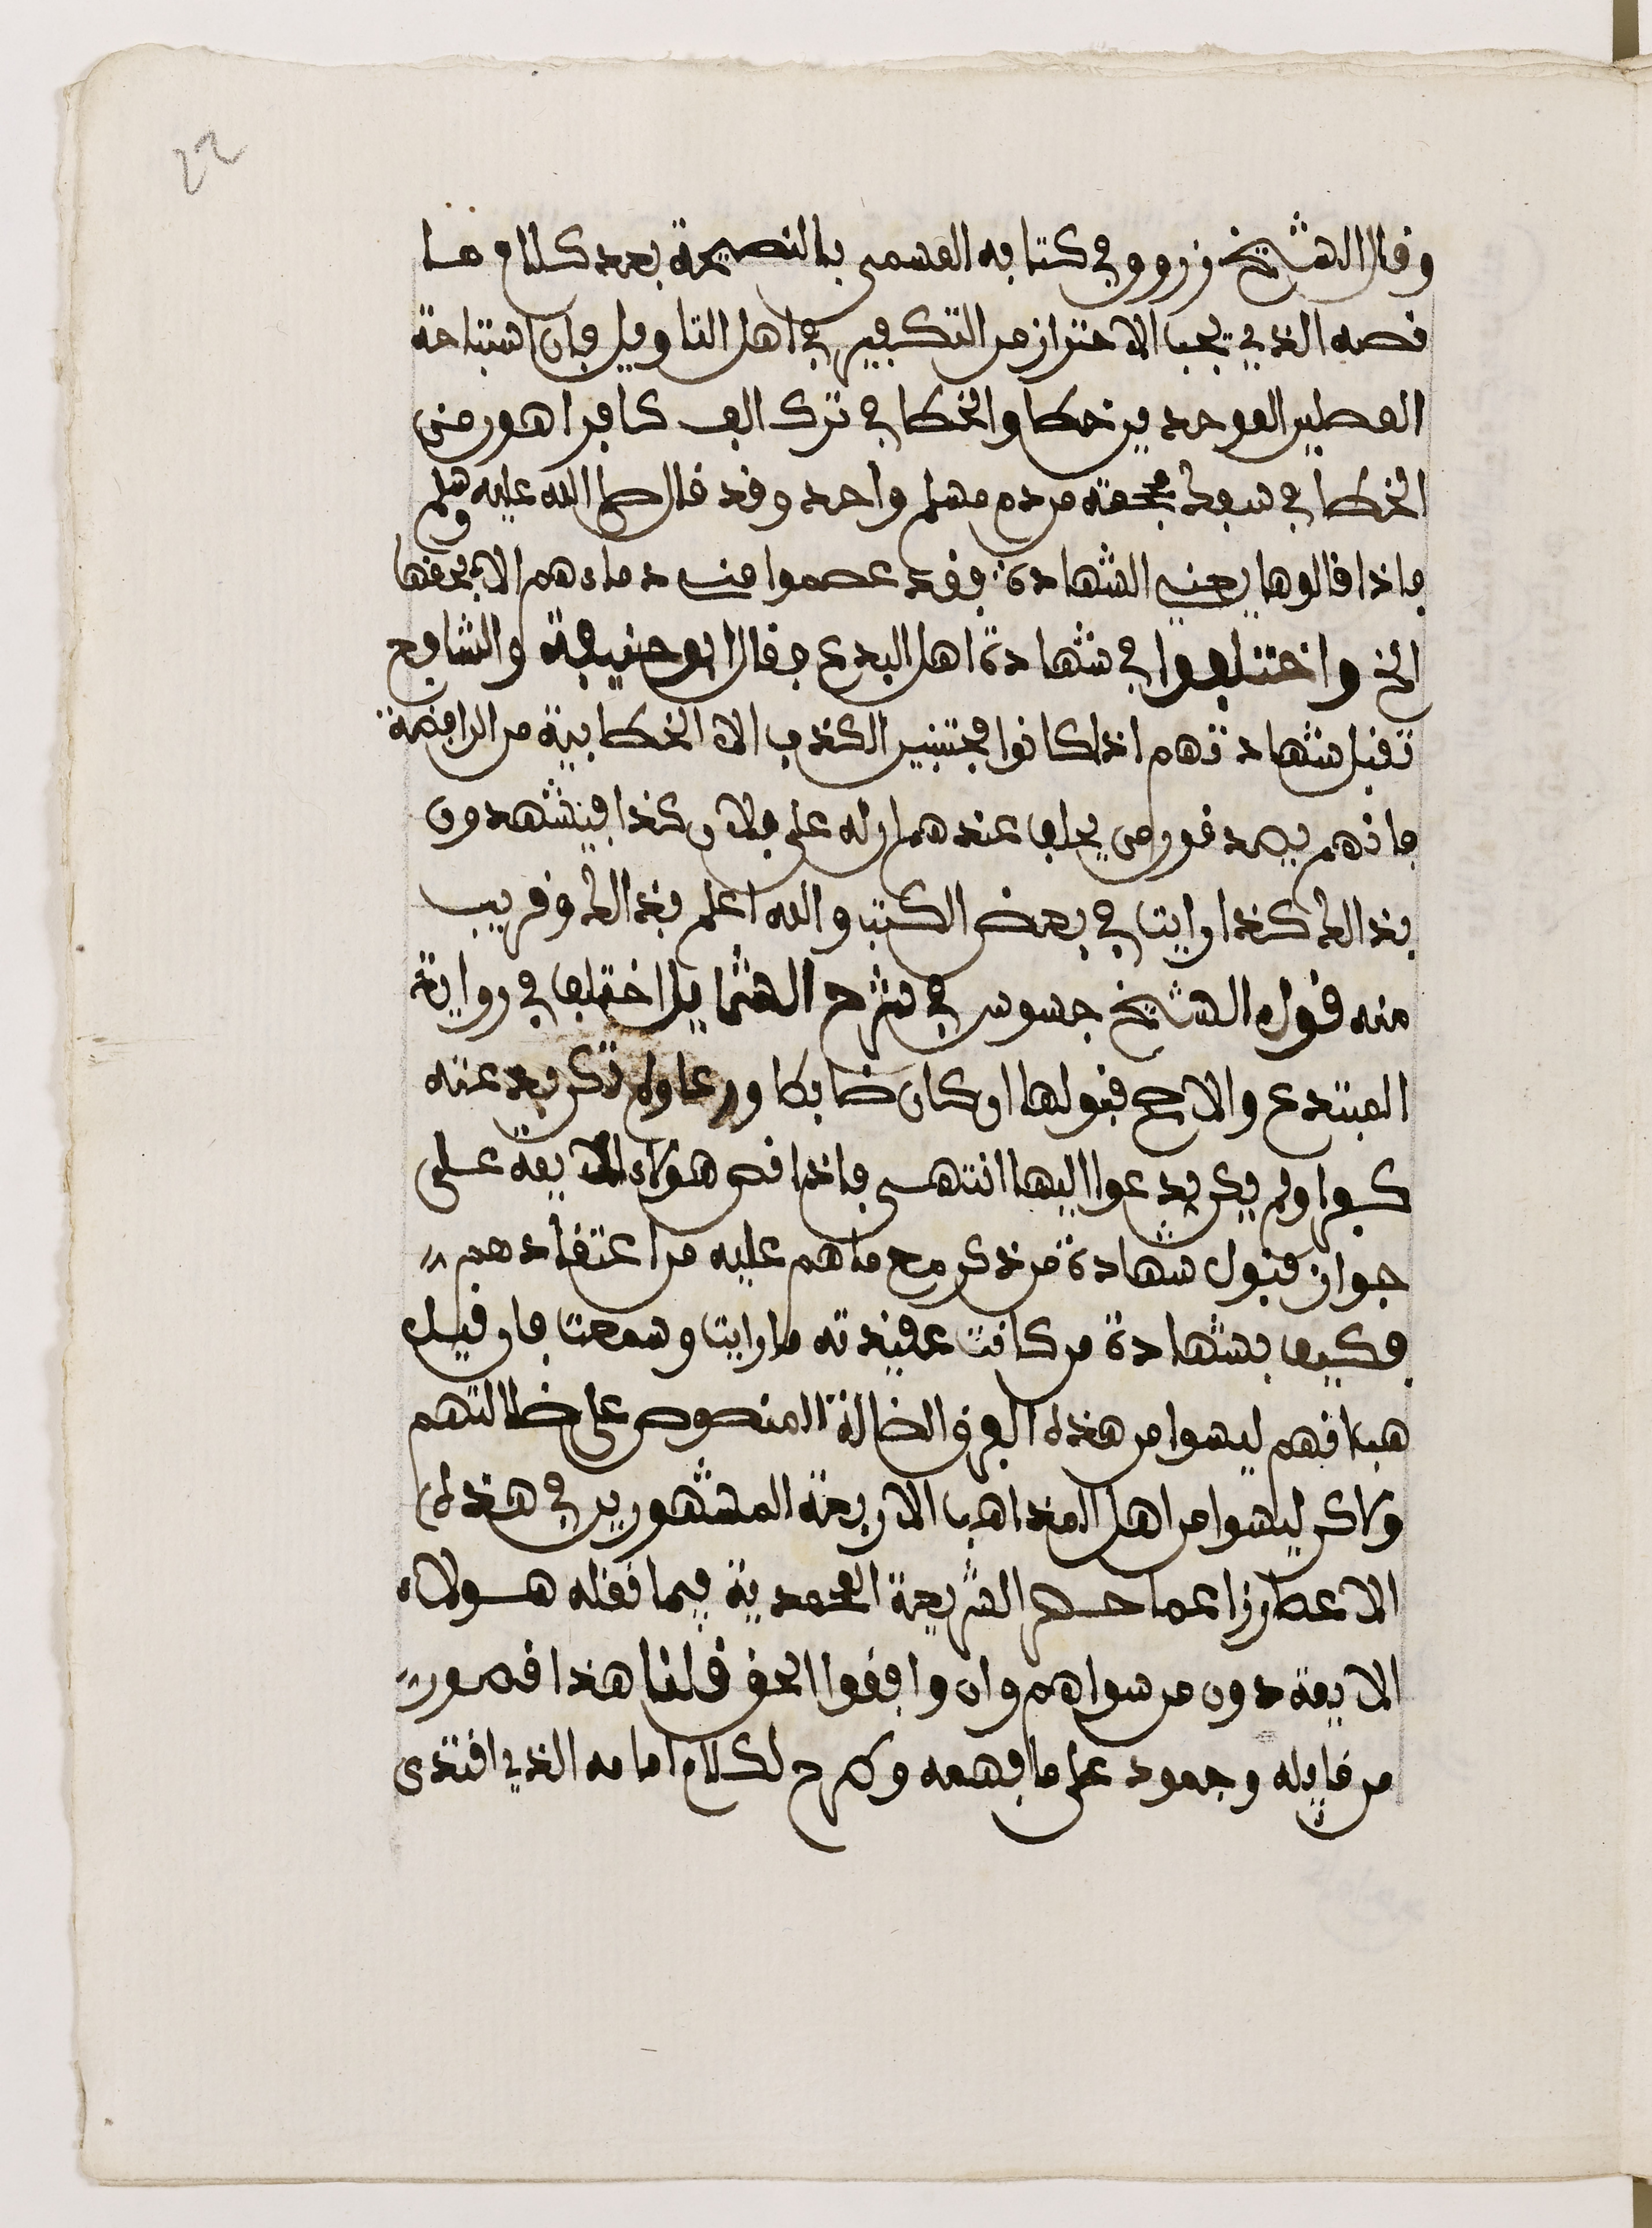 22
وقال الشيخ زروق في كتابه المسمى بالنصيحة بعد كلام ما
نصه الذي يجب الاحتراز من التكفير في اهل التاويل فان استباحة
المصلين الموحدين خطا والخطا في ترك الف كافر اهون من
الخطا في سفك محجمة من دم مسلم واحد وقد قال صلى الله عليه وسلم
فاذا قالوها يعني الشهادة فقد عصموا مني دماءهم الا بحقها
الخ واختلفوا في شهادة اهل البدع فقال ابو حنيفة والشافع
تقبل شهادتهم اذا كانوا مجتنبين الكذب الا الخطابية من الرافضة
فانهم يصدقون من يحلف عندهم ان له على فلان كذا فيشهدون
بذالك كذا رايت في بعض الكتب والله اعلم بذالك وقريب
منه قول الشيخ جسوس في شرح الشمايل اختلف في رواية
المبتدع والاصح قبولها ان كان ضابطا ورعا ولم تكن بدعته
كفرا ولم يكن يدعوا اليها انتهى فاذا نص هؤلاء الايمة على
جواز قبول شهادة من ذكر مع ما هم عليه من اعتقادهم
فكيف بشهادة من كانت عقيدته ما رايت وسمعت فان قيل
هب انهم ليسوا من هذه الفرق الضالة المنصوص على ضلالتهم
ولاكن ليسوا من اهل المذاهب الاربعة المشهورين في هذه
الاعصار زاعما حصر الشريعة المحمدية فيما نقله هولاء
الايمة دون من سواهم وان وافقوا الحق قلنا هذا قصور
من قايله وجمود على ما فهمه وطرح لكلام امامه الذي اقتدى